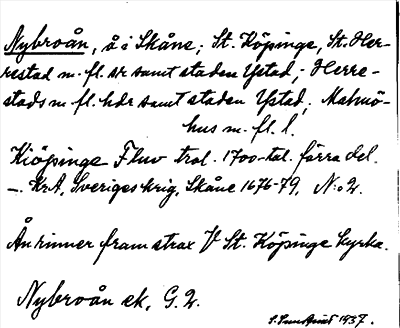 Nybroån, å i Skåne; St. Köpinge, St. Her-
restad m. fl. sr samt staden Ystad; Herre-
stads m. fl. hdr samt staden Ystad; Malmö-
hus m. fl. l.
Kiöpinge Fluv trol. 1700-tal. förra del.
–. KrA, Sveriges krig, Skåne 1676-79, N:o 2.
Ån rinner fram strax V St. Köpinge kyrka.
Nybroån ek. G. 2.
1937.